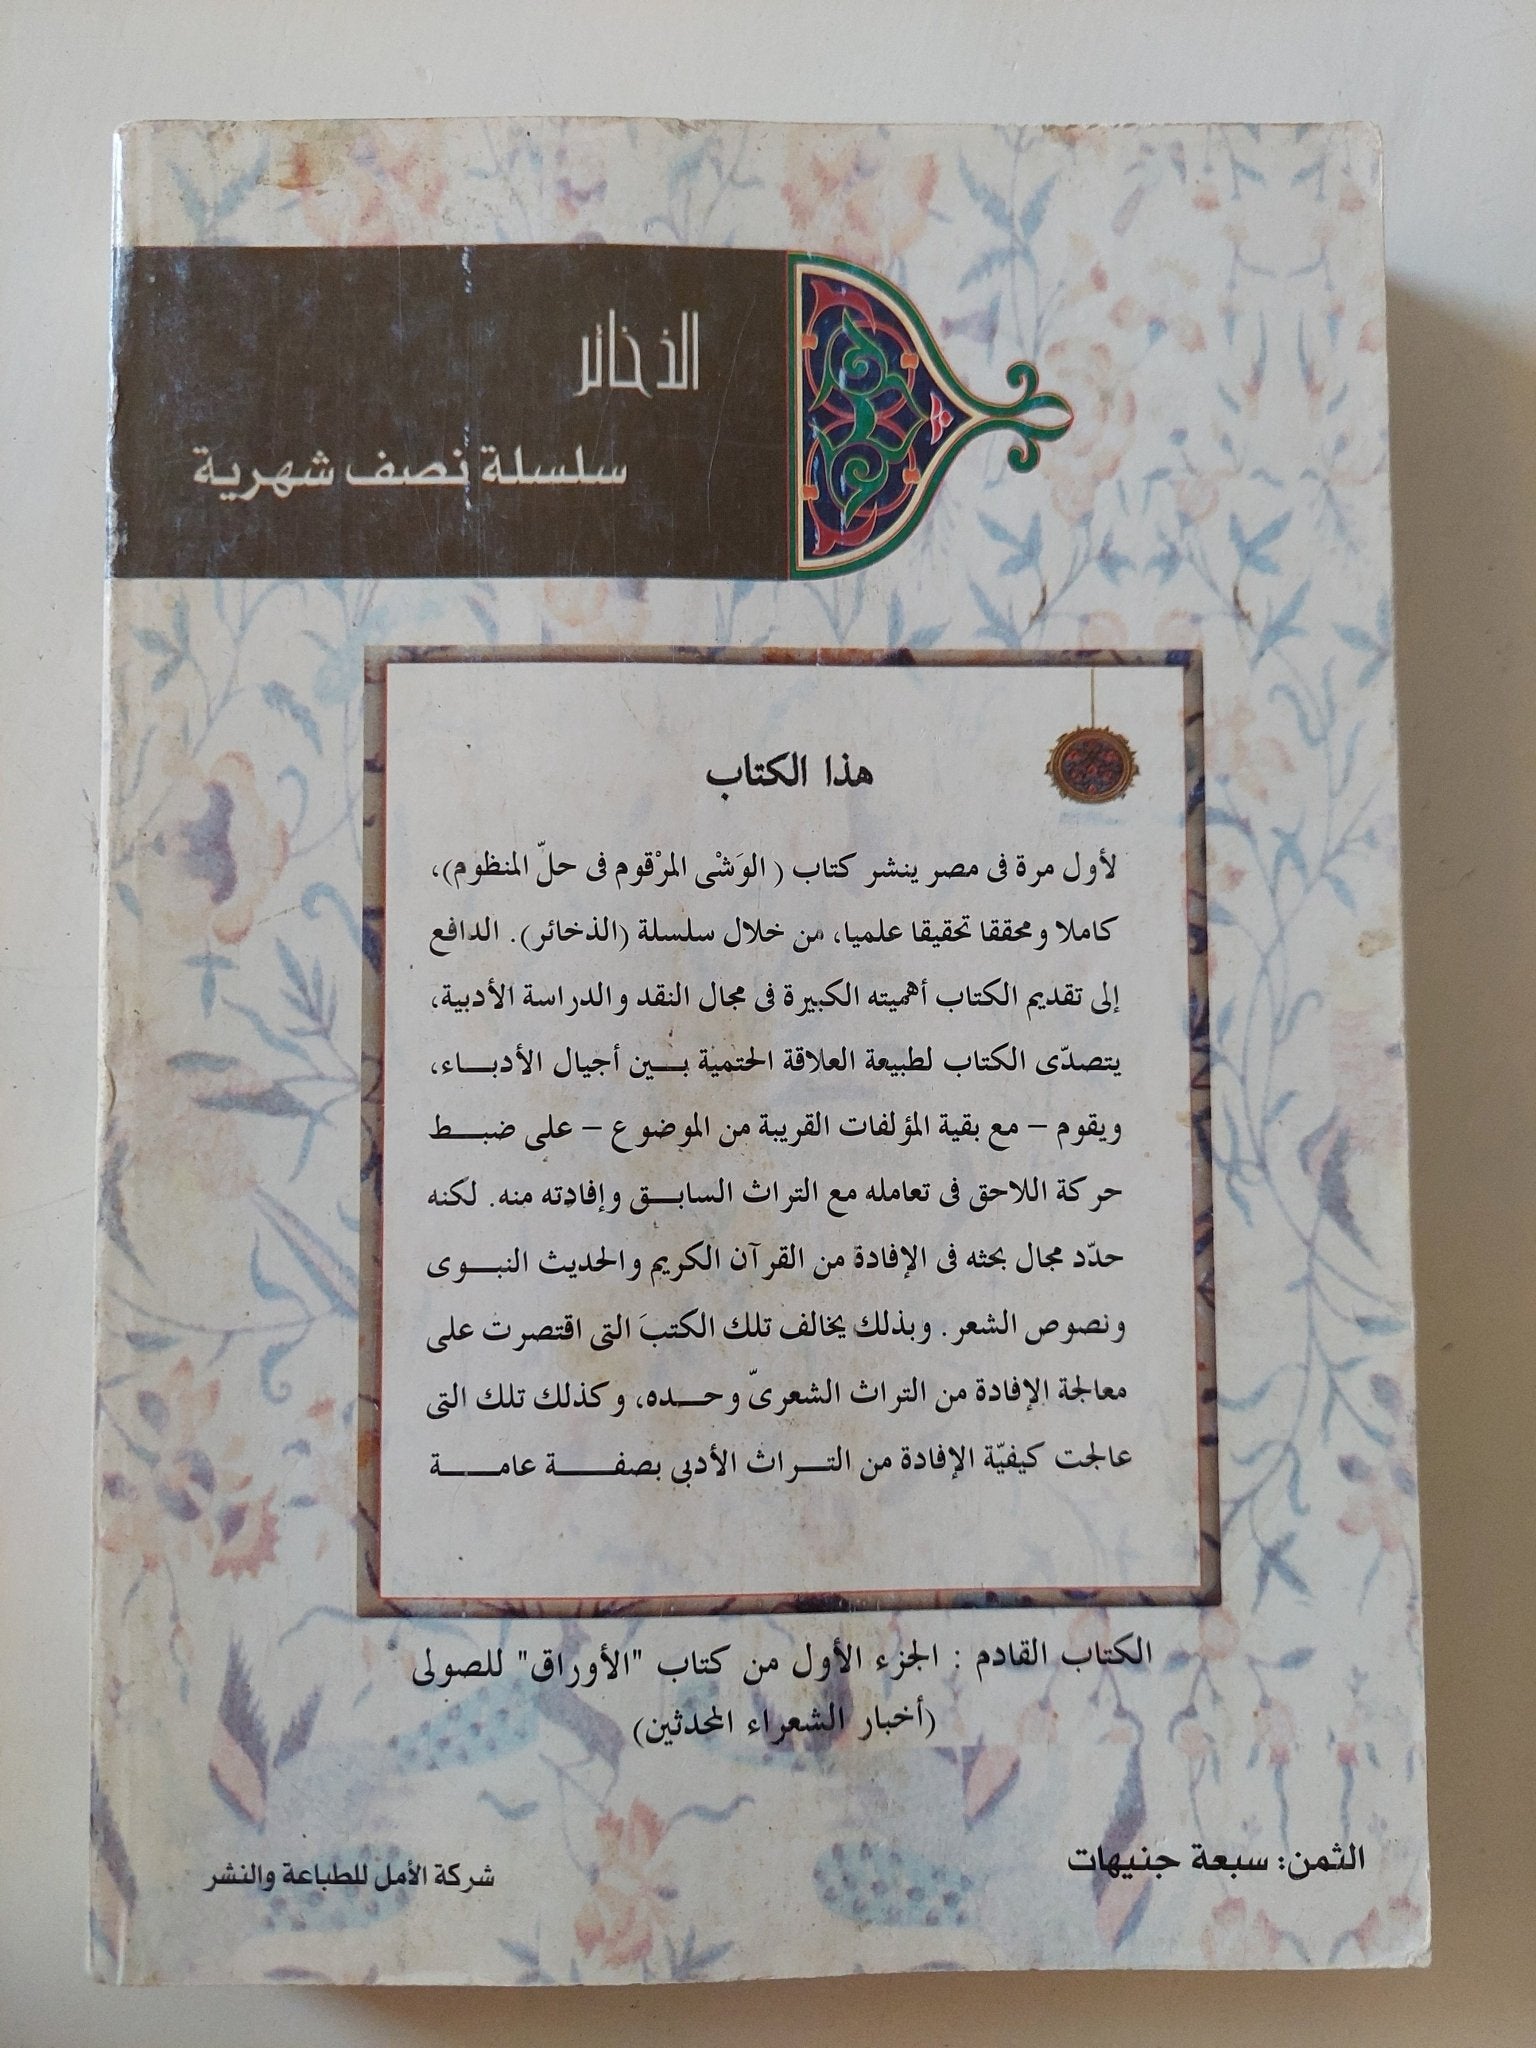 الذخائر
سلسلة نصف شهرية
هذا الكتاب
لأول مرة فى مصر ينشر كتاب ( الوَشْى المرْقوم فى حلّ المنظوم)،
كاملا ومحققا تحقيقا علميا، من خلال سلسلة (الذخائر). الدافع
إلى تقديم الكتاب أهميته الكبيرة فى مجال النقد والدراسة الأدبية،
يتصدّى الكتاب لطبيعة العلاقة الحتمية بـــين أجيال الأدبـــاء،
ويقوم – مع بقية المؤلفات القريبة من الموضوع – على ضبـــط
حركة اللاحق فى تعامله مع التراث السابـــق وإفادته منه. لكنه
حدّد مجال بحثه فى الإفادة من القرآن الكريم والحديث النبـــوى
ونصوص الشعر. وبذلك يخالف تلك الكتبَ التى اقتصرت على
معالجة الإفادة من التراث الشعرىّ وحـــده، وكذلك تلك التى
عالجت كيفيّة الإفادة من التـــراث الأدبى بصفـــــة عامـــــة
الكتاب القادم : الجزء الأول من كتاب "الأوراق" للصولى
(أخبار الشعراء المحدثين)
الثمن: سبعة جنيهات
شركة الأمل للطباعة والنشر